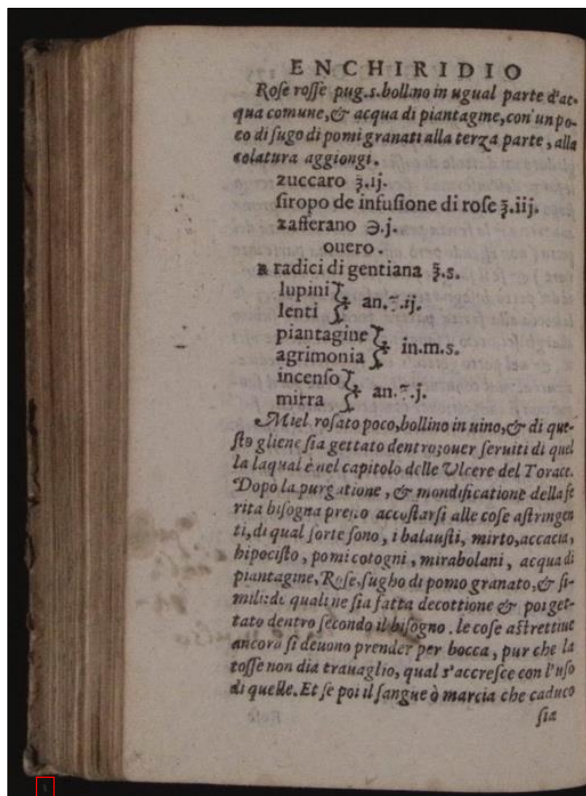 ENCHIRIDIO
Rose rosse pug.s.bollino in ugual parte d'ac-
qua comune, & acqua di piantagine, con un po-
co di sugo di pomi granati alla terza parte, alla
colatura aggiongi.
zuccaro ℥.ij.
siropo de infusione di rose ℥.iij.
zafferano ℈.j.
ouero.
℞ radici di gentiana ℥.s.
lupini
lenti } an. ℥.ij.
piantagine
agrimonia } in.m.s.
incenso
mirra } an. ℥.j.
Miel rosato poco, bollino in uino, & di que-
sto gliene sia gettato dentro; ouer seruiti di quel
la laqual è nel capitolo delle Vlcere del Torace.
Dopò la purgatione, & mondificatione della fe
rita bisogna presto accostarsi alle cose astringen
ti, di qual sorte sono, i balausti, mirto, accacia,
hipocisto, pomi cotogni, mirabolani, acqua di
piantagine, Rose, sugho di pomo granato, & si-
mili: de quali ne sia fatta decottione & poi get-
tato dentro secondo il bisogno. le cose astrettiue
ancora si deuono prender per bocca, pur che la
tosse non dia trauaglio, qual s'accresce con l'uso
di quelle. Et se poi il sangue ò marcia che caduco
sia